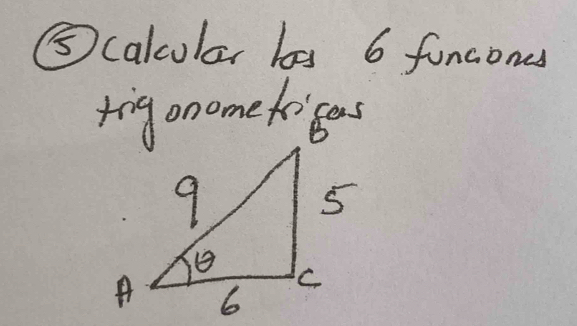 ⑤ Calcular las 6 funciones
trigonometricas
B
9
5
θ
A
6
C